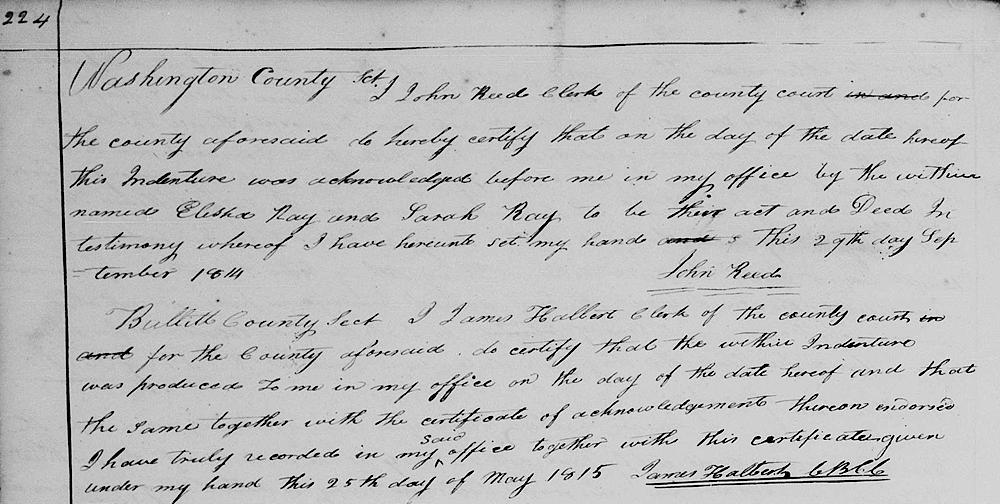 224
Washington County Sct. I John Reed Clerk of the county court in and for
the county aforesaid do hereby certify that on the day of the date hereof
this Indenture was acknowledged before me in my office by the within
named Elisha Ray and Sarah Ray to be their act and Deed In
testimony whereof I have hereunto set my hand and s this 29th day Sep
-tember 1814
John Reed
Bullitt County Sect I James Halbert Clerk of the county court in
and for the County aforesaid do certify that the within Indenture
was produced to me in my office on the day of the date hereof and that
the same together with the certificate of acknowledgement thereon endorsed
I have truly recorded in my said office together with this certificate given
under my hand this 25th day of May 1815 James Halbert CBCC